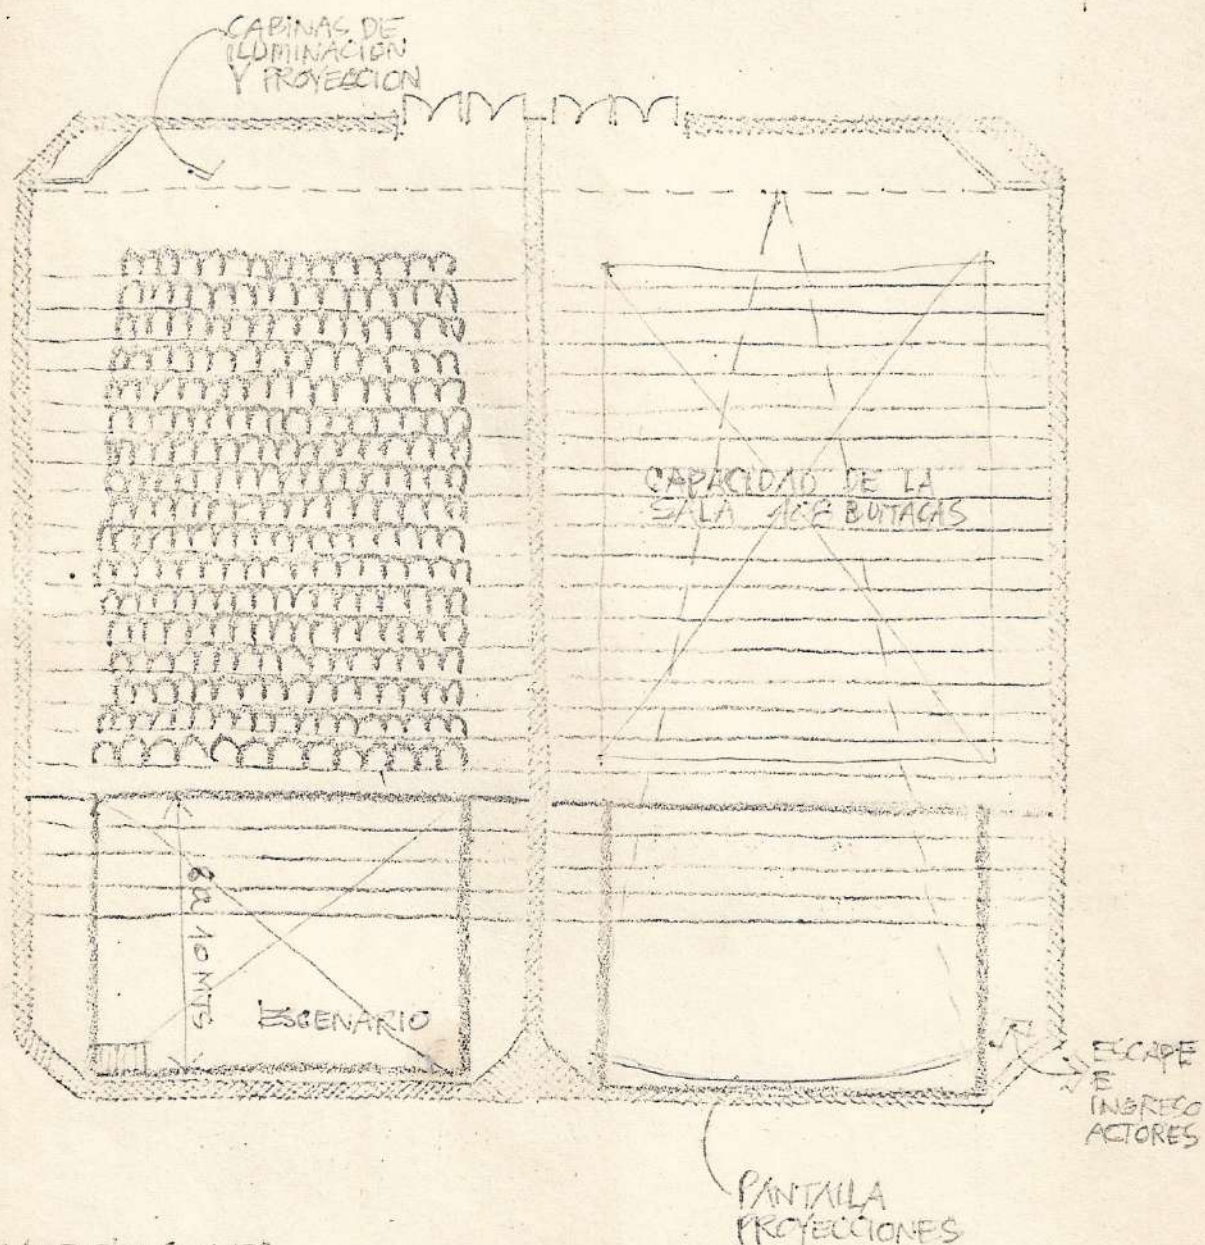 CABINAS DE
ILUMINACION
Y PROYECCION
CAPACIDAD DE LA
SALA BUTACAS
10 MTS
ESCENARIO
ESCAPE
E
INGRESO
ACTORES
PANTALLA
PROYECCIONES